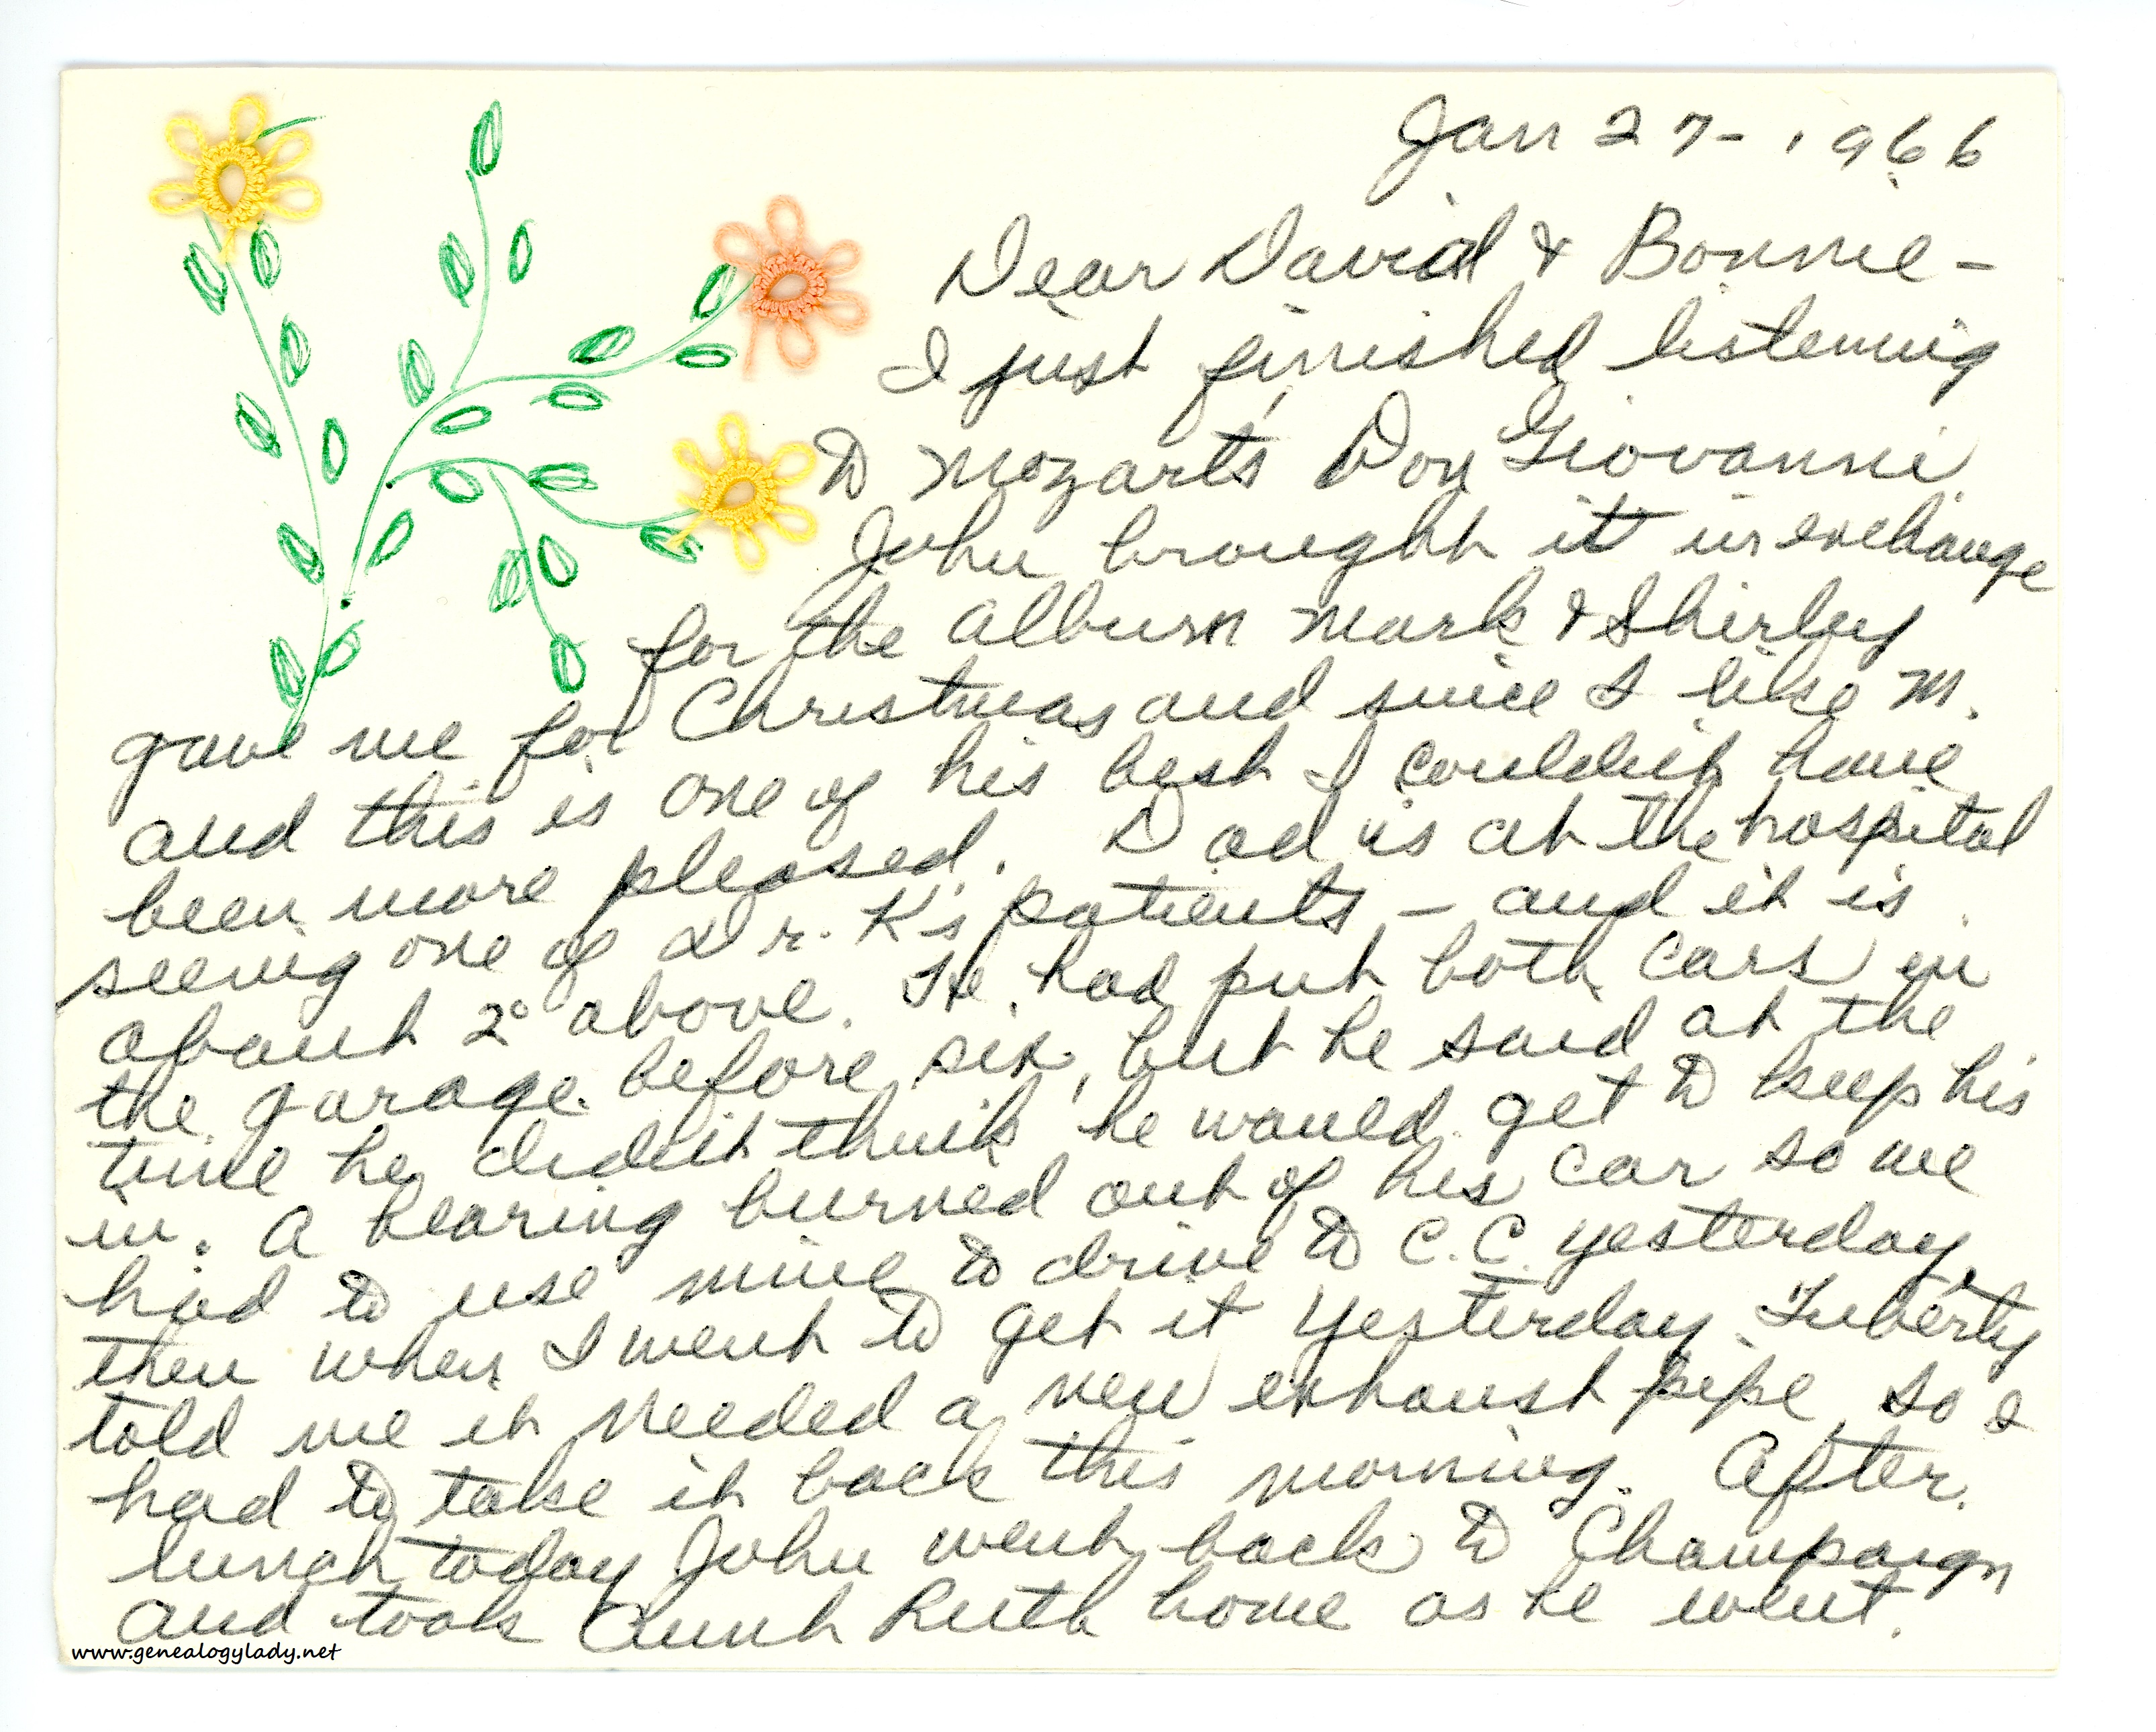 Jan 27 - 1966
Dear David & Bonnie -
I just finished listening
to Mozarts Don Giovanni.
John brought it in exchange
for the album Mark & Shirley
gave me for Christmas and since I like M.
and this is one of his best I couldn't have
been more pleased. Dad is at the hospital
seeing one of Dr. K's patients - and it is
about 2° above. He had put both cars in
the garage before six, but he said at the
time he didn't think he would get to keep his
in. A bearing burned out of his car so we
had to use mine to drive to C.C. yesterday,
then when I went to get it yesterday Tuberty
told me it needed a new exhaust pipe, so I
had to take it back this morning. After
lunch today John went back to Champaign
and took Aunt Ruth home as he went.
www.genealogylady.net